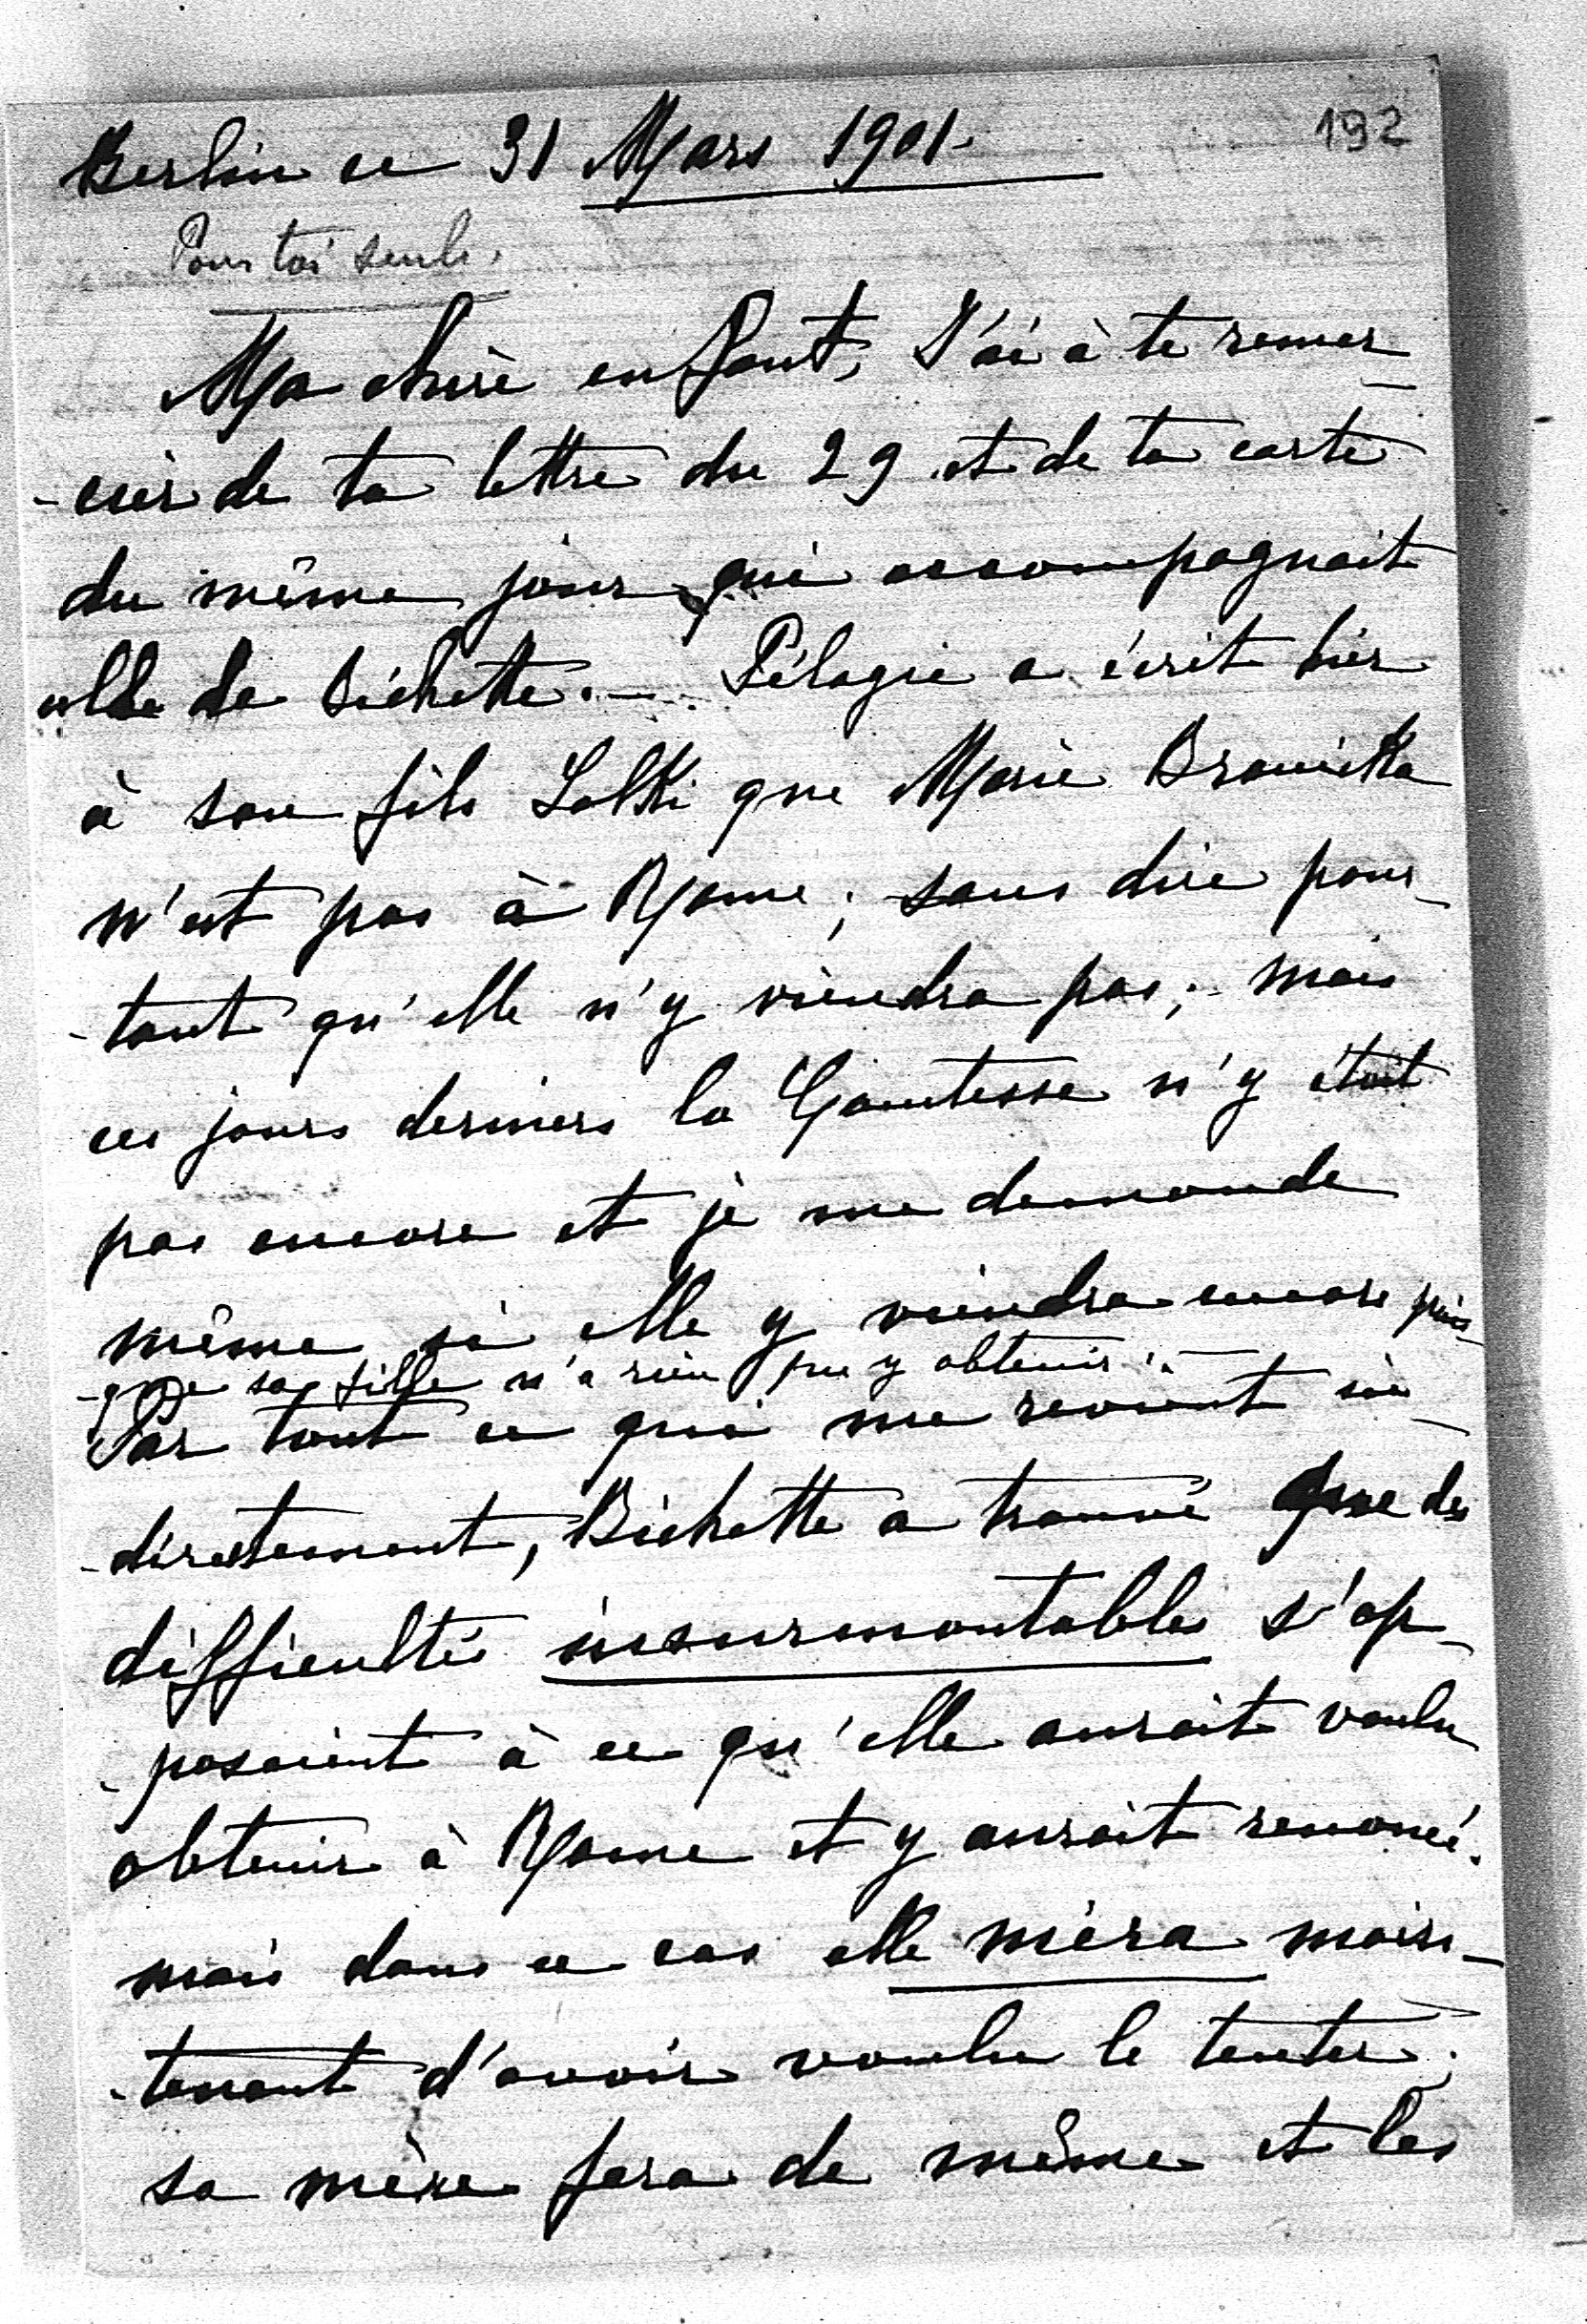 192
Berlin ce 31 Mars 1901.
Pour toi seule.
Ma chère enfant, J'ai à te remer-
-cier de ta lettre du 29 et de ta carte
du même jour qui accompagnait
celle de Bichette. — Pélagie a écrit hier
à son fils Lolki que Marie Branicka
n'est pas à Rome; sans dire pour-
-tant qu'elle n'y viendra pas; mais
ces jours derniers la Comtesse n'y était
pas encore et je me demande
même si elle y viendra encore puis-
-que sa fille n'a rien pu y obtenir.
Par tout ce qui me revient in-
-directement, Bichette a trouvé que des
difficultés insurmontables s'op-
-posaient à ce qu'elle aurait voulu
obtenir à Rome et y aurait renoncé.
mais dans ce cas elle niera main-
-tenant d'avoir voulu le tenter;
sa mère fera de même et les